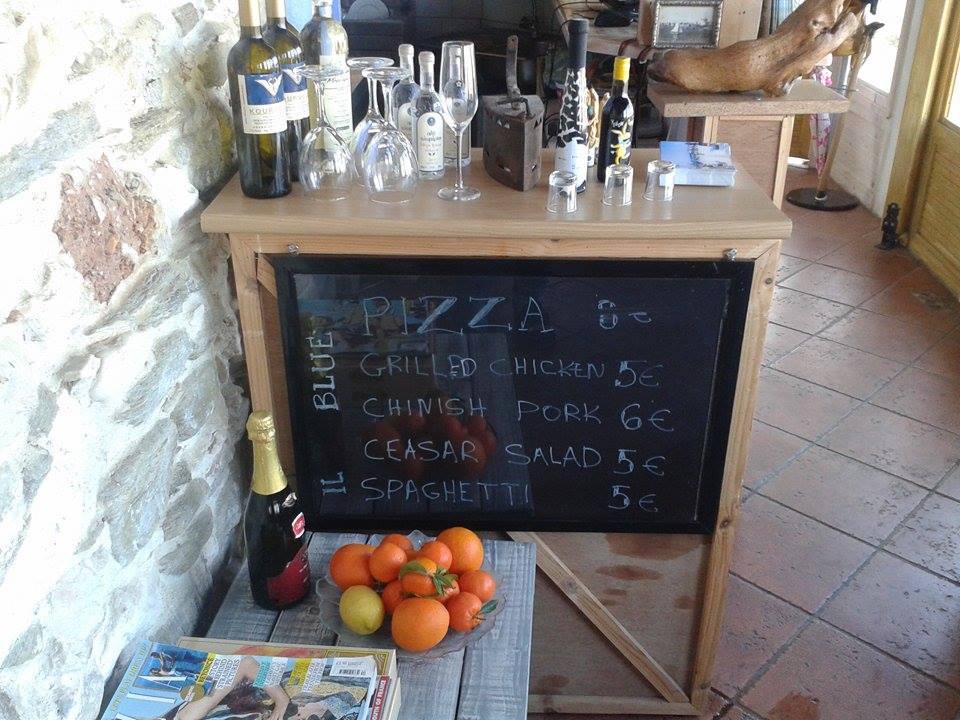 PIZZA 8€
GRILLED CHICKEN 5€
CHINISH PORK 6€
CEASAR SALAD 5€
SPAGHETTI 5€
IL BLUE